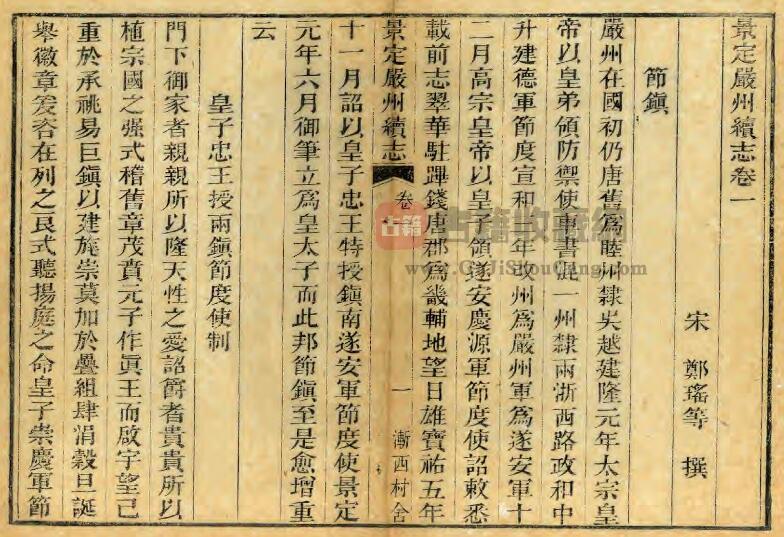 景定嚴州續志卷一
宋 鄭瑤等 撰
節鎮
嚴州在國初仍唐舊爲睦州隷吳越建隆元年太宗皇
帝以皇弟領防禦使車書混一州隷兩浙西路政和中
升建德軍節度宣和三年改州爲嚴州軍爲遂安軍十
二月高宗皇帝以皇子領遂安慶源軍節度使詔敕悉
載前志翠華駐蹕錢唐郡爲畿輔地望日雄寶祐五年
景定嚴州續志 卷一 一 漸西村舍
十一月詔以皇子忠王特授鎮南遂安軍節度使景定
元年六月御筆立爲皇太子而此邦節鎮至是愈增重
云
皇子忠王授兩鎮節度使制
門下御家者親親所以隆天性之愛詔爵者貴貴所以
植宗國之强式稽舊章茂賁元子作眞王而啟宇望已
重於承祧易巨鎮以建旄崇莫加於疊組肆涓穀旦誕
舉徽章爰咨在列之良式聽揚庭之命皇子崇慶軍節
古籍
古籍收藏網
www.GuJiShouCang.com